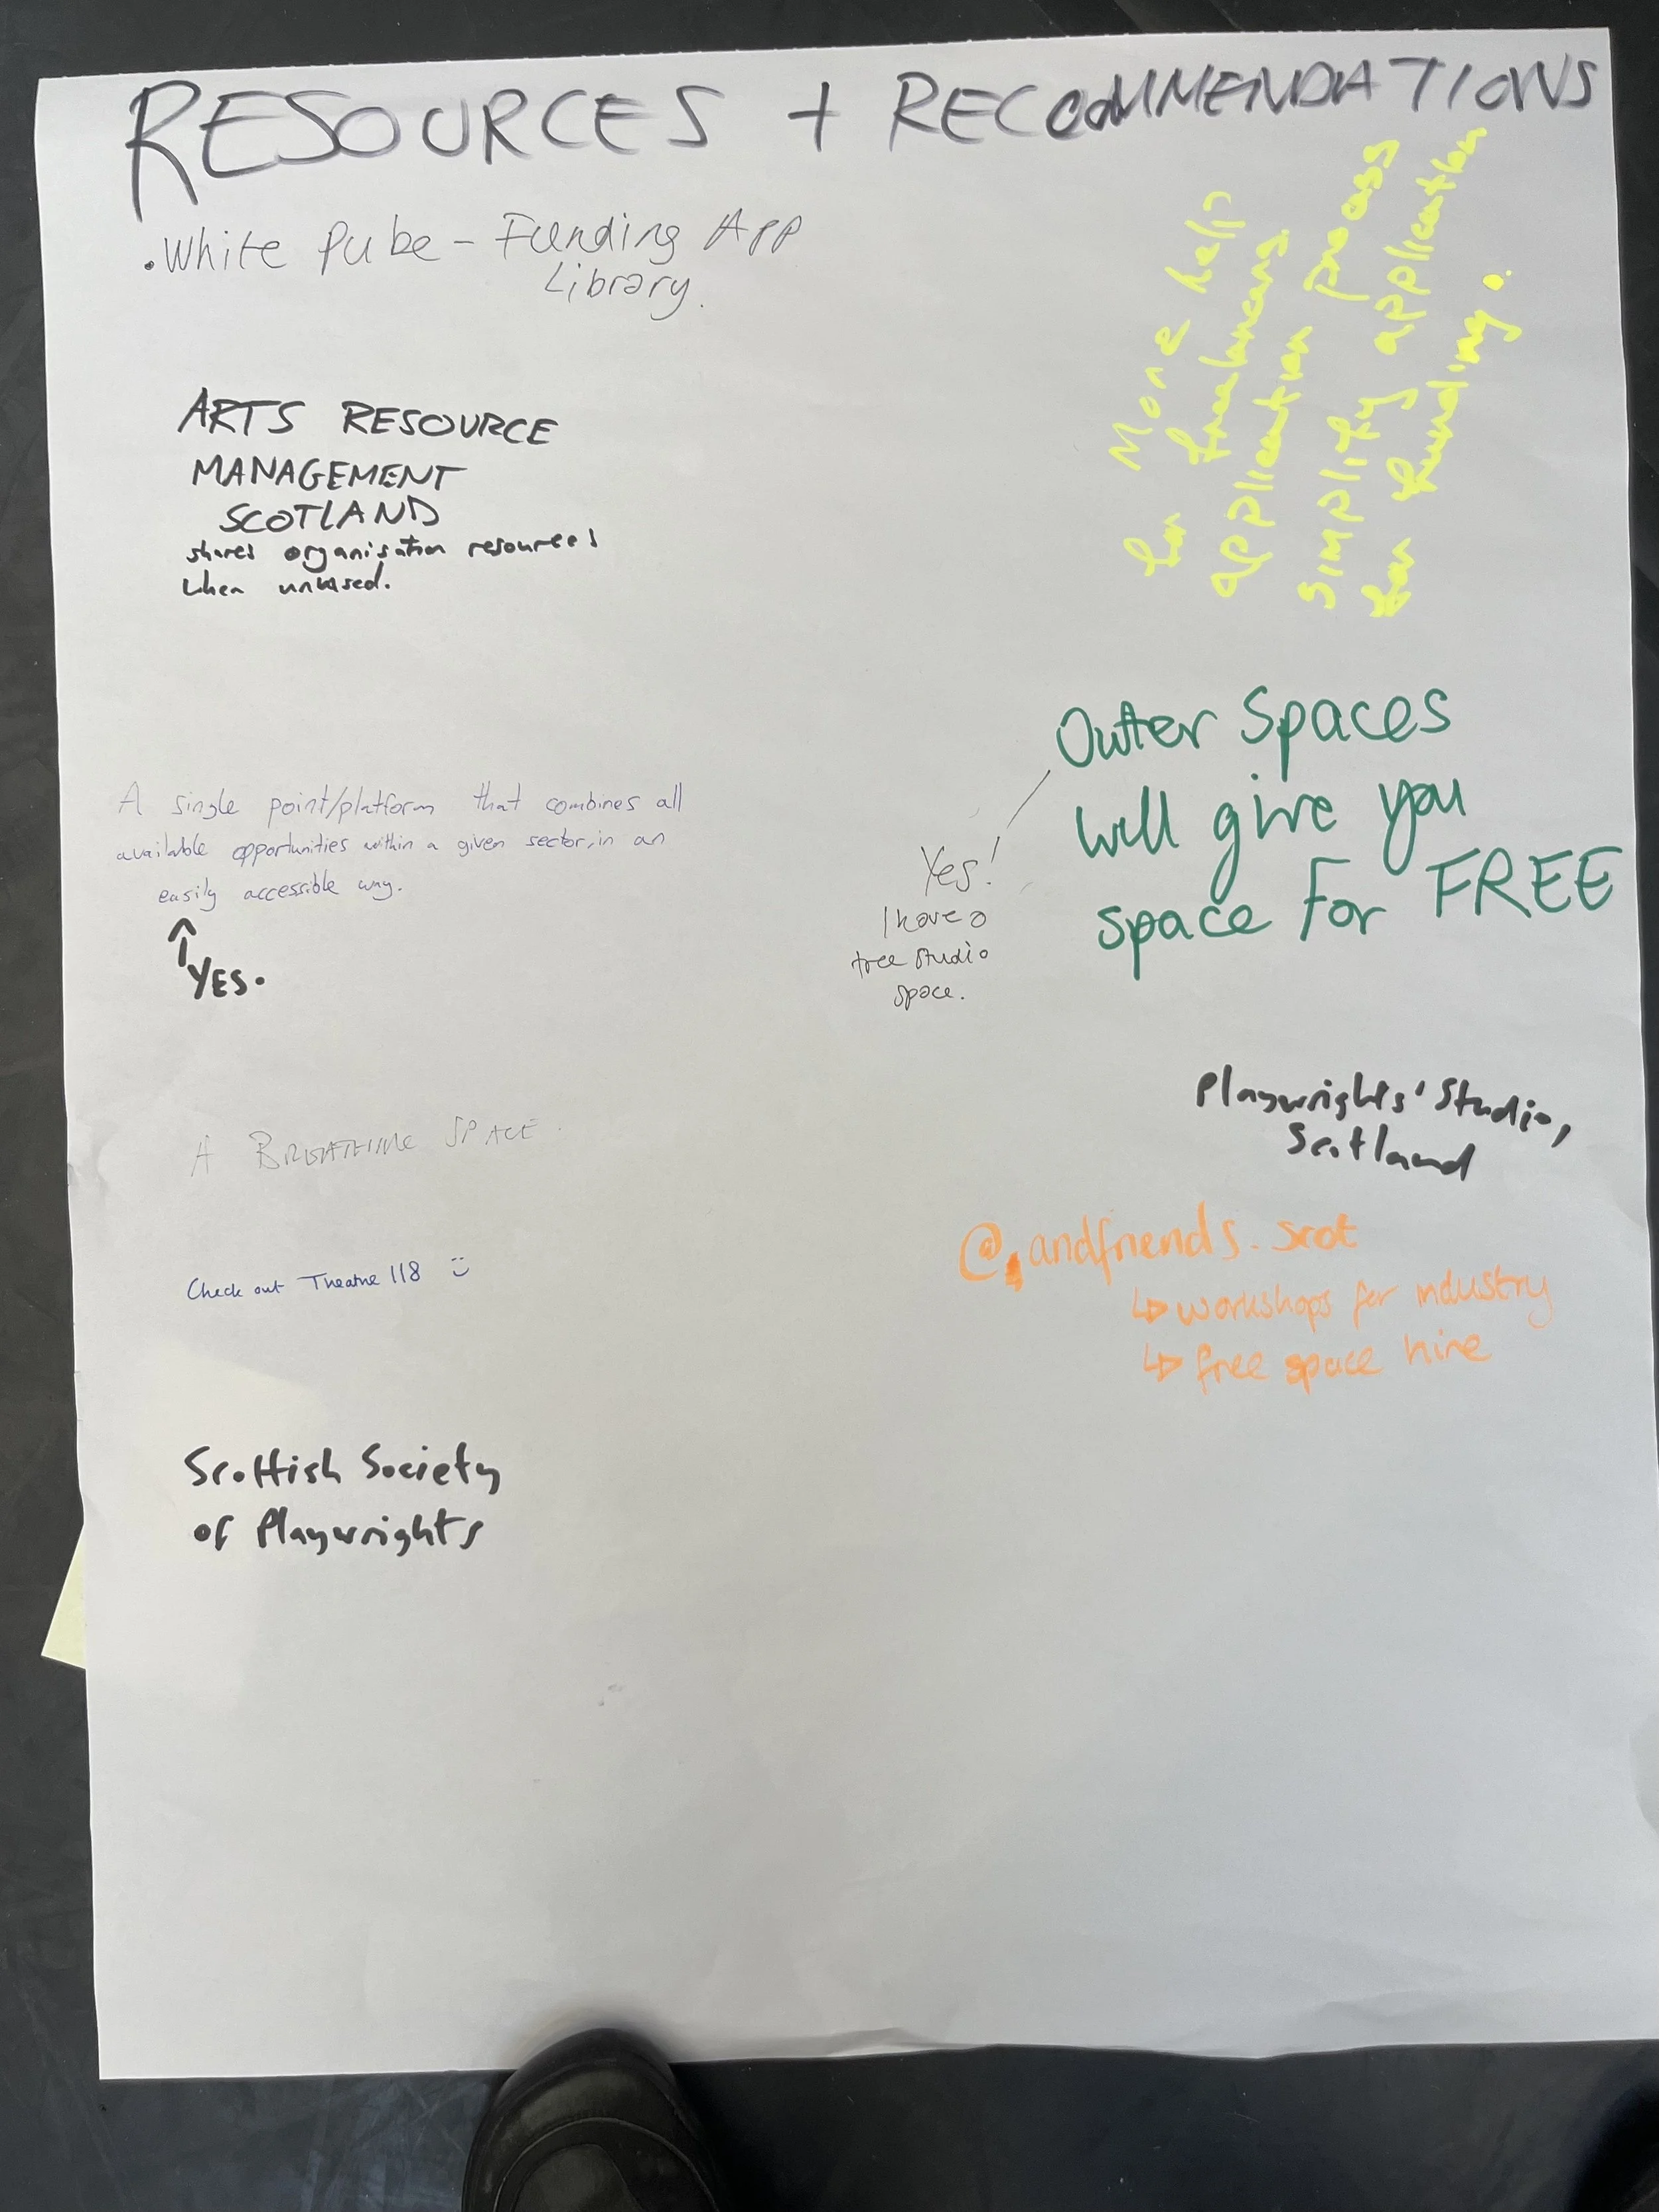 RESOURCES + RECOMMENDATIONS
. White Pube - Funding App
Library.
More help
for freelancers.
application process
simplify application
for funding.
ARTS RESOURCE
MANAGEMENT
SCOTLAND
shares organisation resources
when unused.
Outer Spaces
will give you
space For FREE
Yes!
I have a
free studio
space.
A single point/platform that combines all
available opportunities within a given sector, in an
easily accessible way.
↑
YES.
Playwrights' Studio,
Scotland
A BREATHING SPACE.
@andfriends.scot
↳ workshops for industry
↳ free space hire
Check out Theatre 118 :)
Scottish Society
of Playwrights